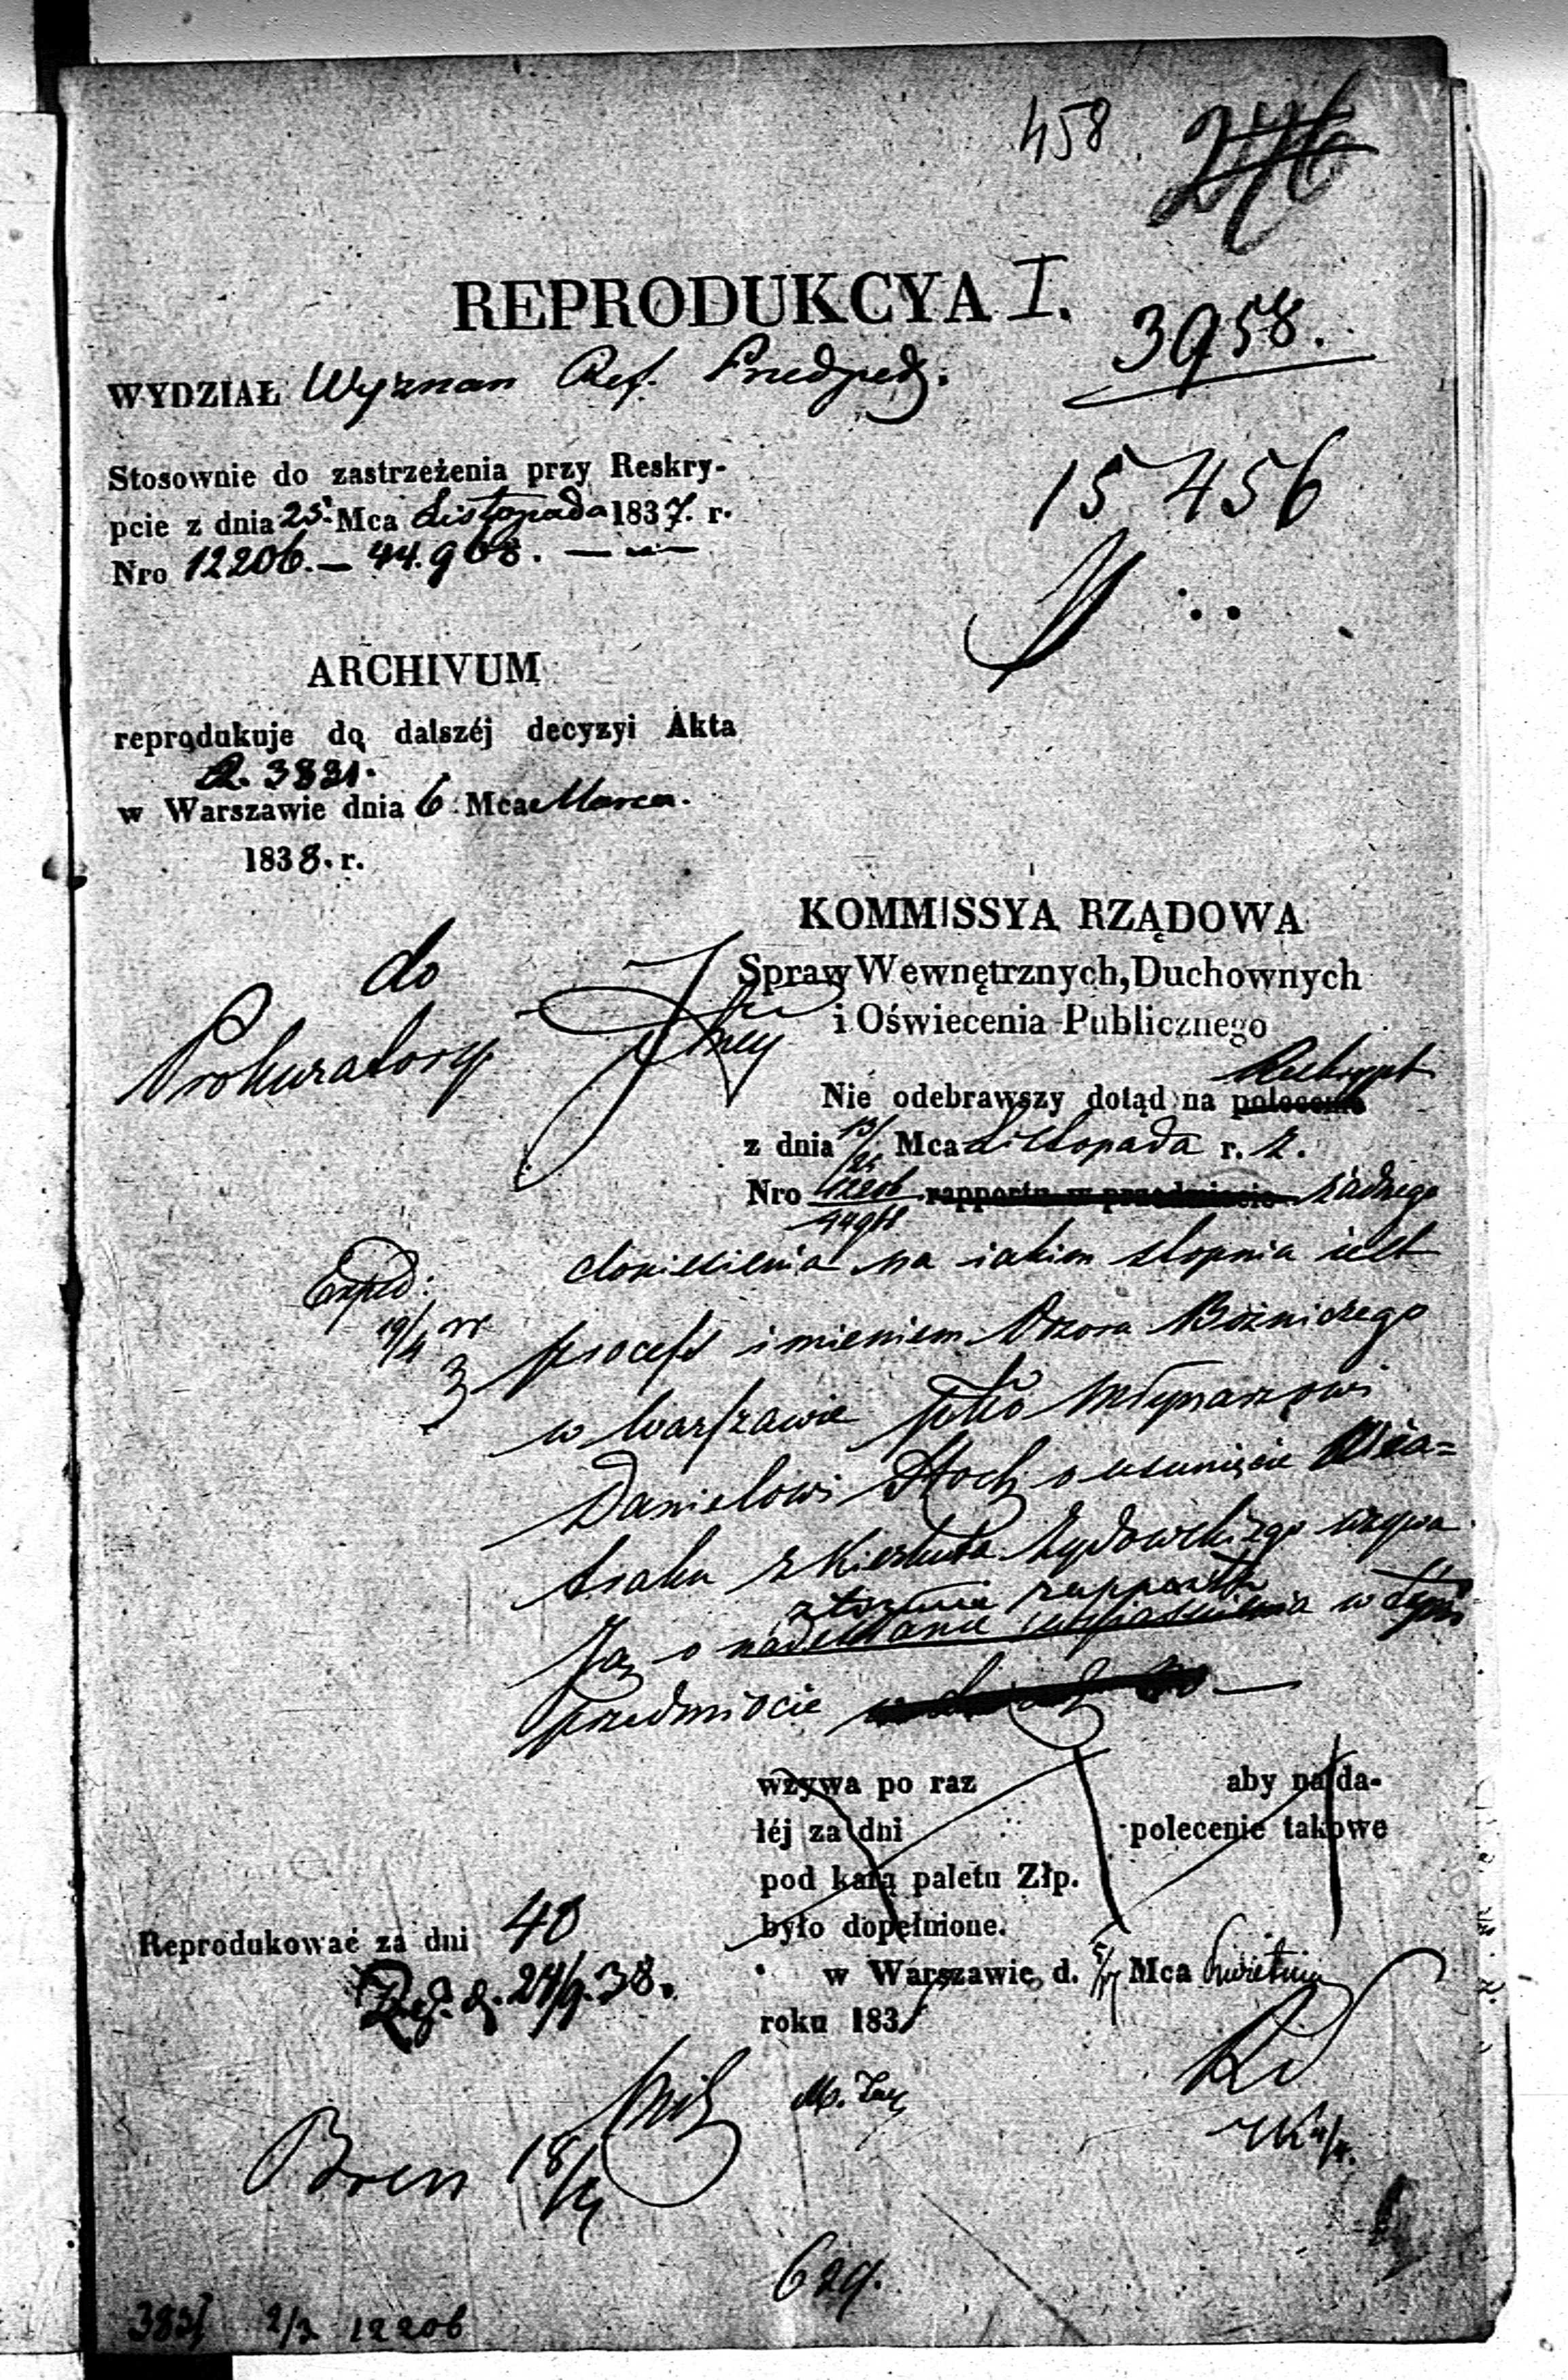 458.
276
REPRODUKCYA I.
3958.
WYDZIAŁ Wyznan Ref.
15456
Stosownie do zastrzeżenia przy Reskry-
pcie z dnia 25 Mca Listopada 1837. r.
Nro 12206. — 44.968. —
ARCHIVUM
reprodukuje do dalszéj decyzyi Akta
A. 3831.
w Warszawie dnia 6 Mca Marca.
1838. r.
KOMMISSYA RZĄDOWA
Spraw Wewnętrznych, Duchownych
i Oświecenia Publicznego
do
Prokuratoryi
Reskrypt
Nie odebrawszy dotąd na polecenie
z dnia 13/25 Mca Listopada r. z.
Nro 12206/44968 rapportu w przedmiocie żadnego
doniesienia na iakim stopniu iest
Exped:
19/4
process imieniem Dozoru Bożniczego
w Warszawie pko Młynarzowi
Danielowi Stoch o usunięcie Wia=
traka z Kierkuta Żydowskiego wzywa
złożenie rapportu
Ją o nadesłanie w tym
przedmiocie
wzywa po raz aby najda-
léj za dni polecenie takowe
pod karą paletu Złp.
było dopełnione.
Reprodukować za dni 40
w Warszawie, d. Mca Kwietnia
24/9.38.
roku 183
18/4
629.
3831 2/3 12206